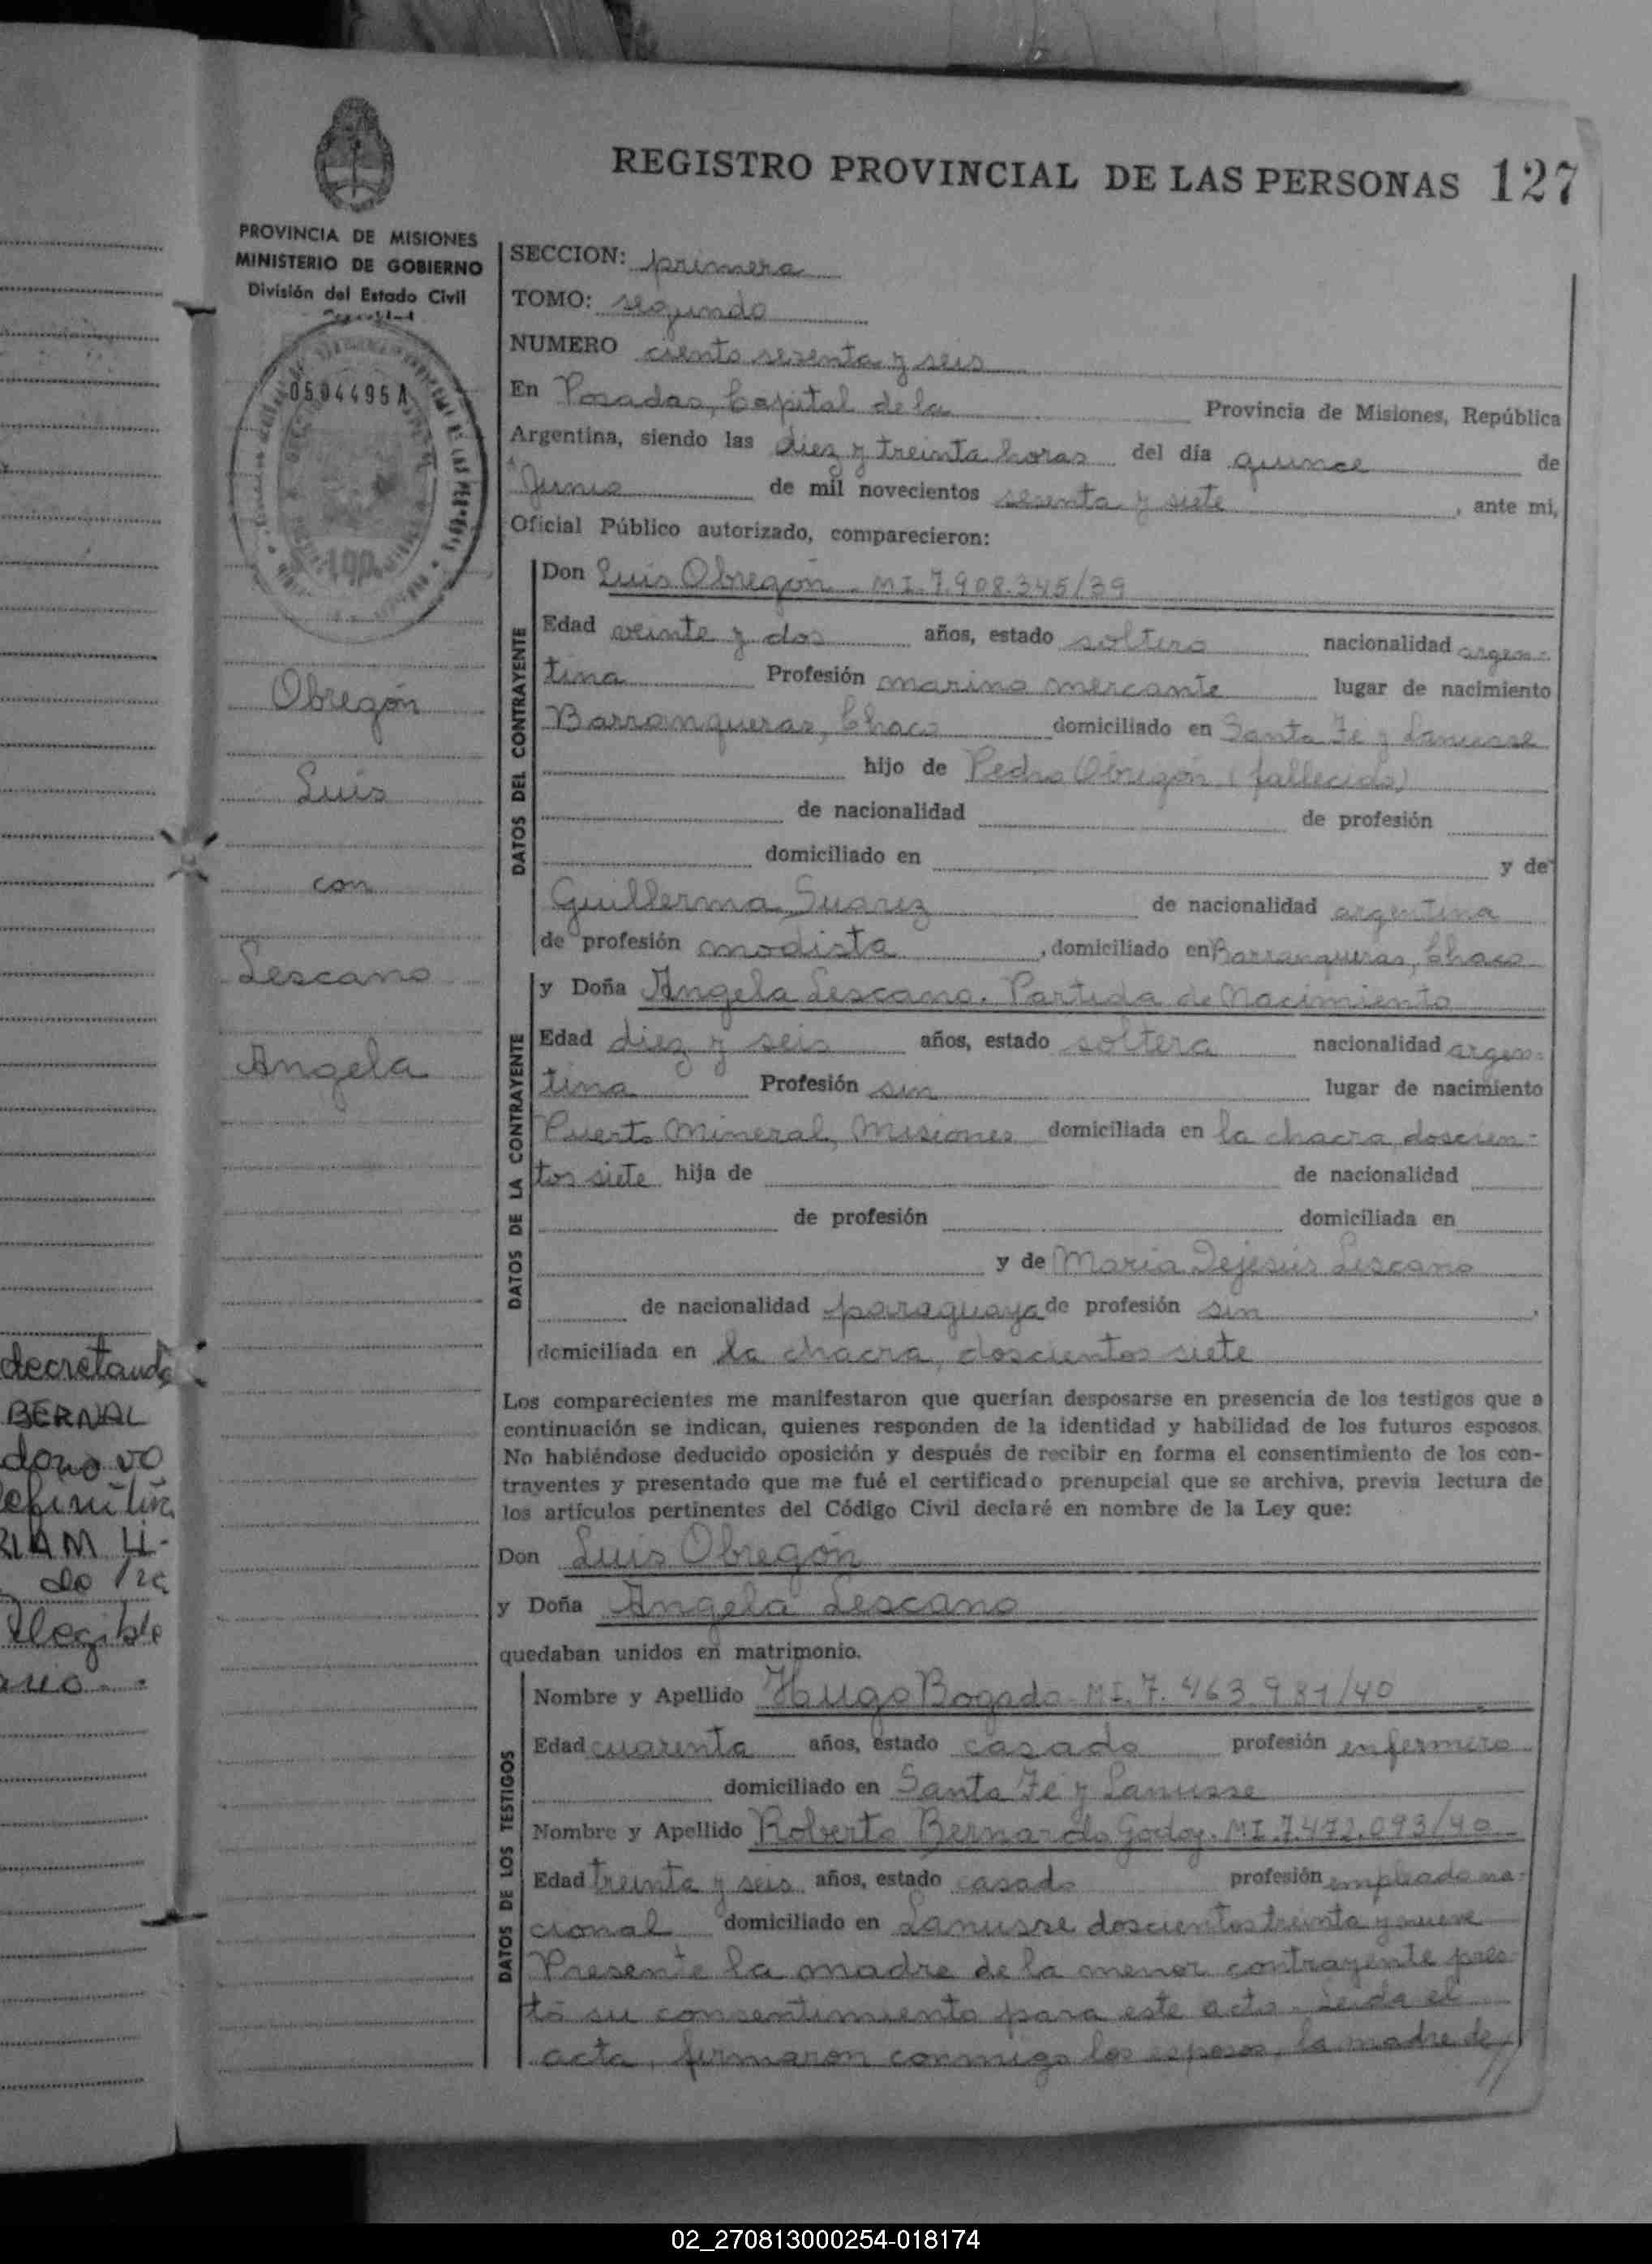 REGISTRO PROVINCIAL DE LAS PERSONAS 127
PROVINCIA DE MISIONES
MINISTERIO DE GOBIERNO
División del Estado Civil
0504495 A
100
Obregón
Luis
con
Lescano
Angela
SECCION: primera
TOMO: segundo
NUMERO ciento sesenta y seis
En Posadas, Capital de la Provincia de Misiones, República
Argentina, siendo las diez y treinta horas del día quince de
Junio de mil novecientos sesenta y siete, ante mi,
Oficial Público autorizado, comparecieron:
DATOS DEL CONTRAYENTE
Don Luis Obregón - MI. 7.908.345/39
Edad veinte y dos años, estado soltero nacionalidad argen-
tina Profesión marino mercante lugar de nacimiento
Barranqueras, Chaco domiciliado en Santa Fe y Lanusse
hijo de Pedro Obregón (fallecido)
de nacionalidad de profesión
domiciliado en y de
Guillerma Suarez de nacionalidad argentina
de profesión modista, domiciliado en Barranqueras, Chaco
DATOS DE LA CONTRAYENTE
y Doña Angela Lescano. Partida de Nacimiento
Edad diez y seis años, estado soltera nacionalidad argen-
tina Profesión sin lugar de nacimiento
Puerto Mineral, Misiones domiciliada en la chacra doscien-
tos siete hija de de nacionalidad
de profesión domiciliada en
y de Maria Dejesús Lescano
de nacionalidad paraguaya de profesión sin,
domiciliada en la chacra, doscientos siete
Los comparecientes me manifestaron que querían desposarse en presencia de los testigos que a
continuación se indican, quienes responden de la identidad y habilidad de los futuros esposos.
No habiéndose deducido oposición y después de recibir en forma el consentimiento de los con-
trayentes y presentado que me fué el certificado prenupcial que se archiva, previa lectura de
los artículos pertinentes del Código Civil declaré en nombre de la Ley que:
Don Luis Obregón
y Doña Angela Lescano
quedaban unidos en matrimonio.
DATOS DE LOS TESTIGOS
Nombre y Apellido Hugo Bogado - MI. 7.463.981/40
Edad cuarenta años, estado casado profesión enfermero
domiciliado en Santa Fé y Lanusse
Nombre y Apellido Roberto Bernardo Godoy. MI. 7.472.093/40
Edad treinta y seis años, estado casado profesión empleado na-
cional domiciliado en Lanusse doscientos treinta y nueve
Presente la madre de la menor contrayente pres-
tó su consentimiento para este acto. Leida el
acta, firmaron conmigo los esposos, la madre de//
decretando
BERNAL
Ilegible
02_270813000254-018174